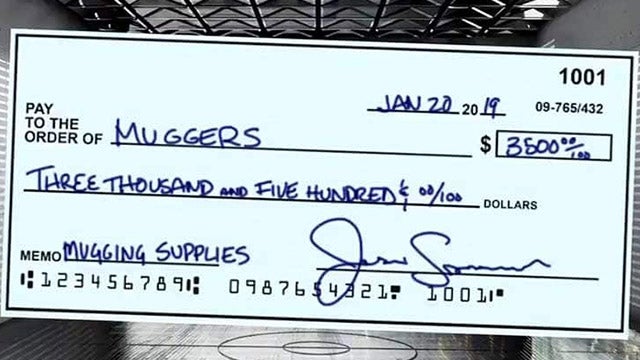 1001
JAN 20 2019 09-765/432
PAY
TO THE
ORDER OF MUGGERS $ 3500 00/100
THREE THOUSAND AND FIVE HUNDRED & 00/100 DOLLARS
MEMO MUGGING SUPPLIES
⑆123456789⑆ 0987654321⑈ 1001⑈